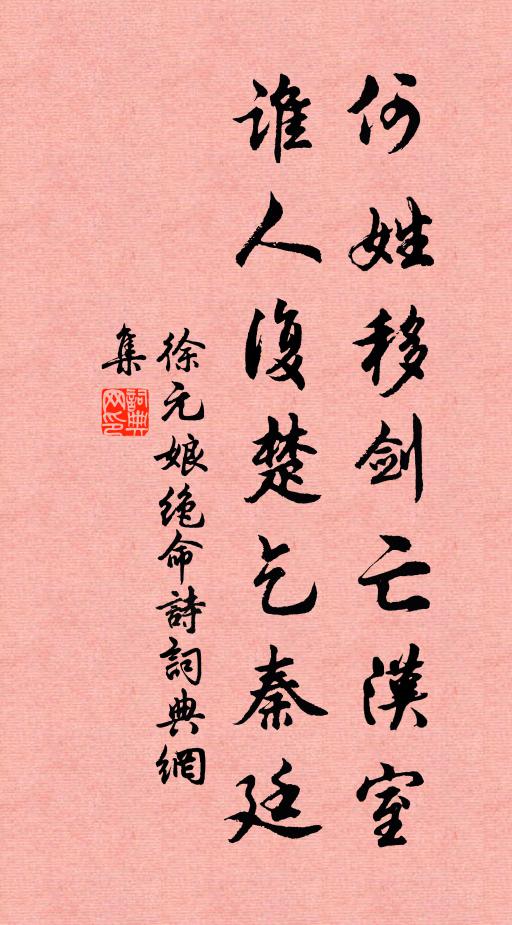 何姓移剑亡漢室
誰人復楚乞秦廷
徐元娘绝命詩詞典網
集
詞典
网印